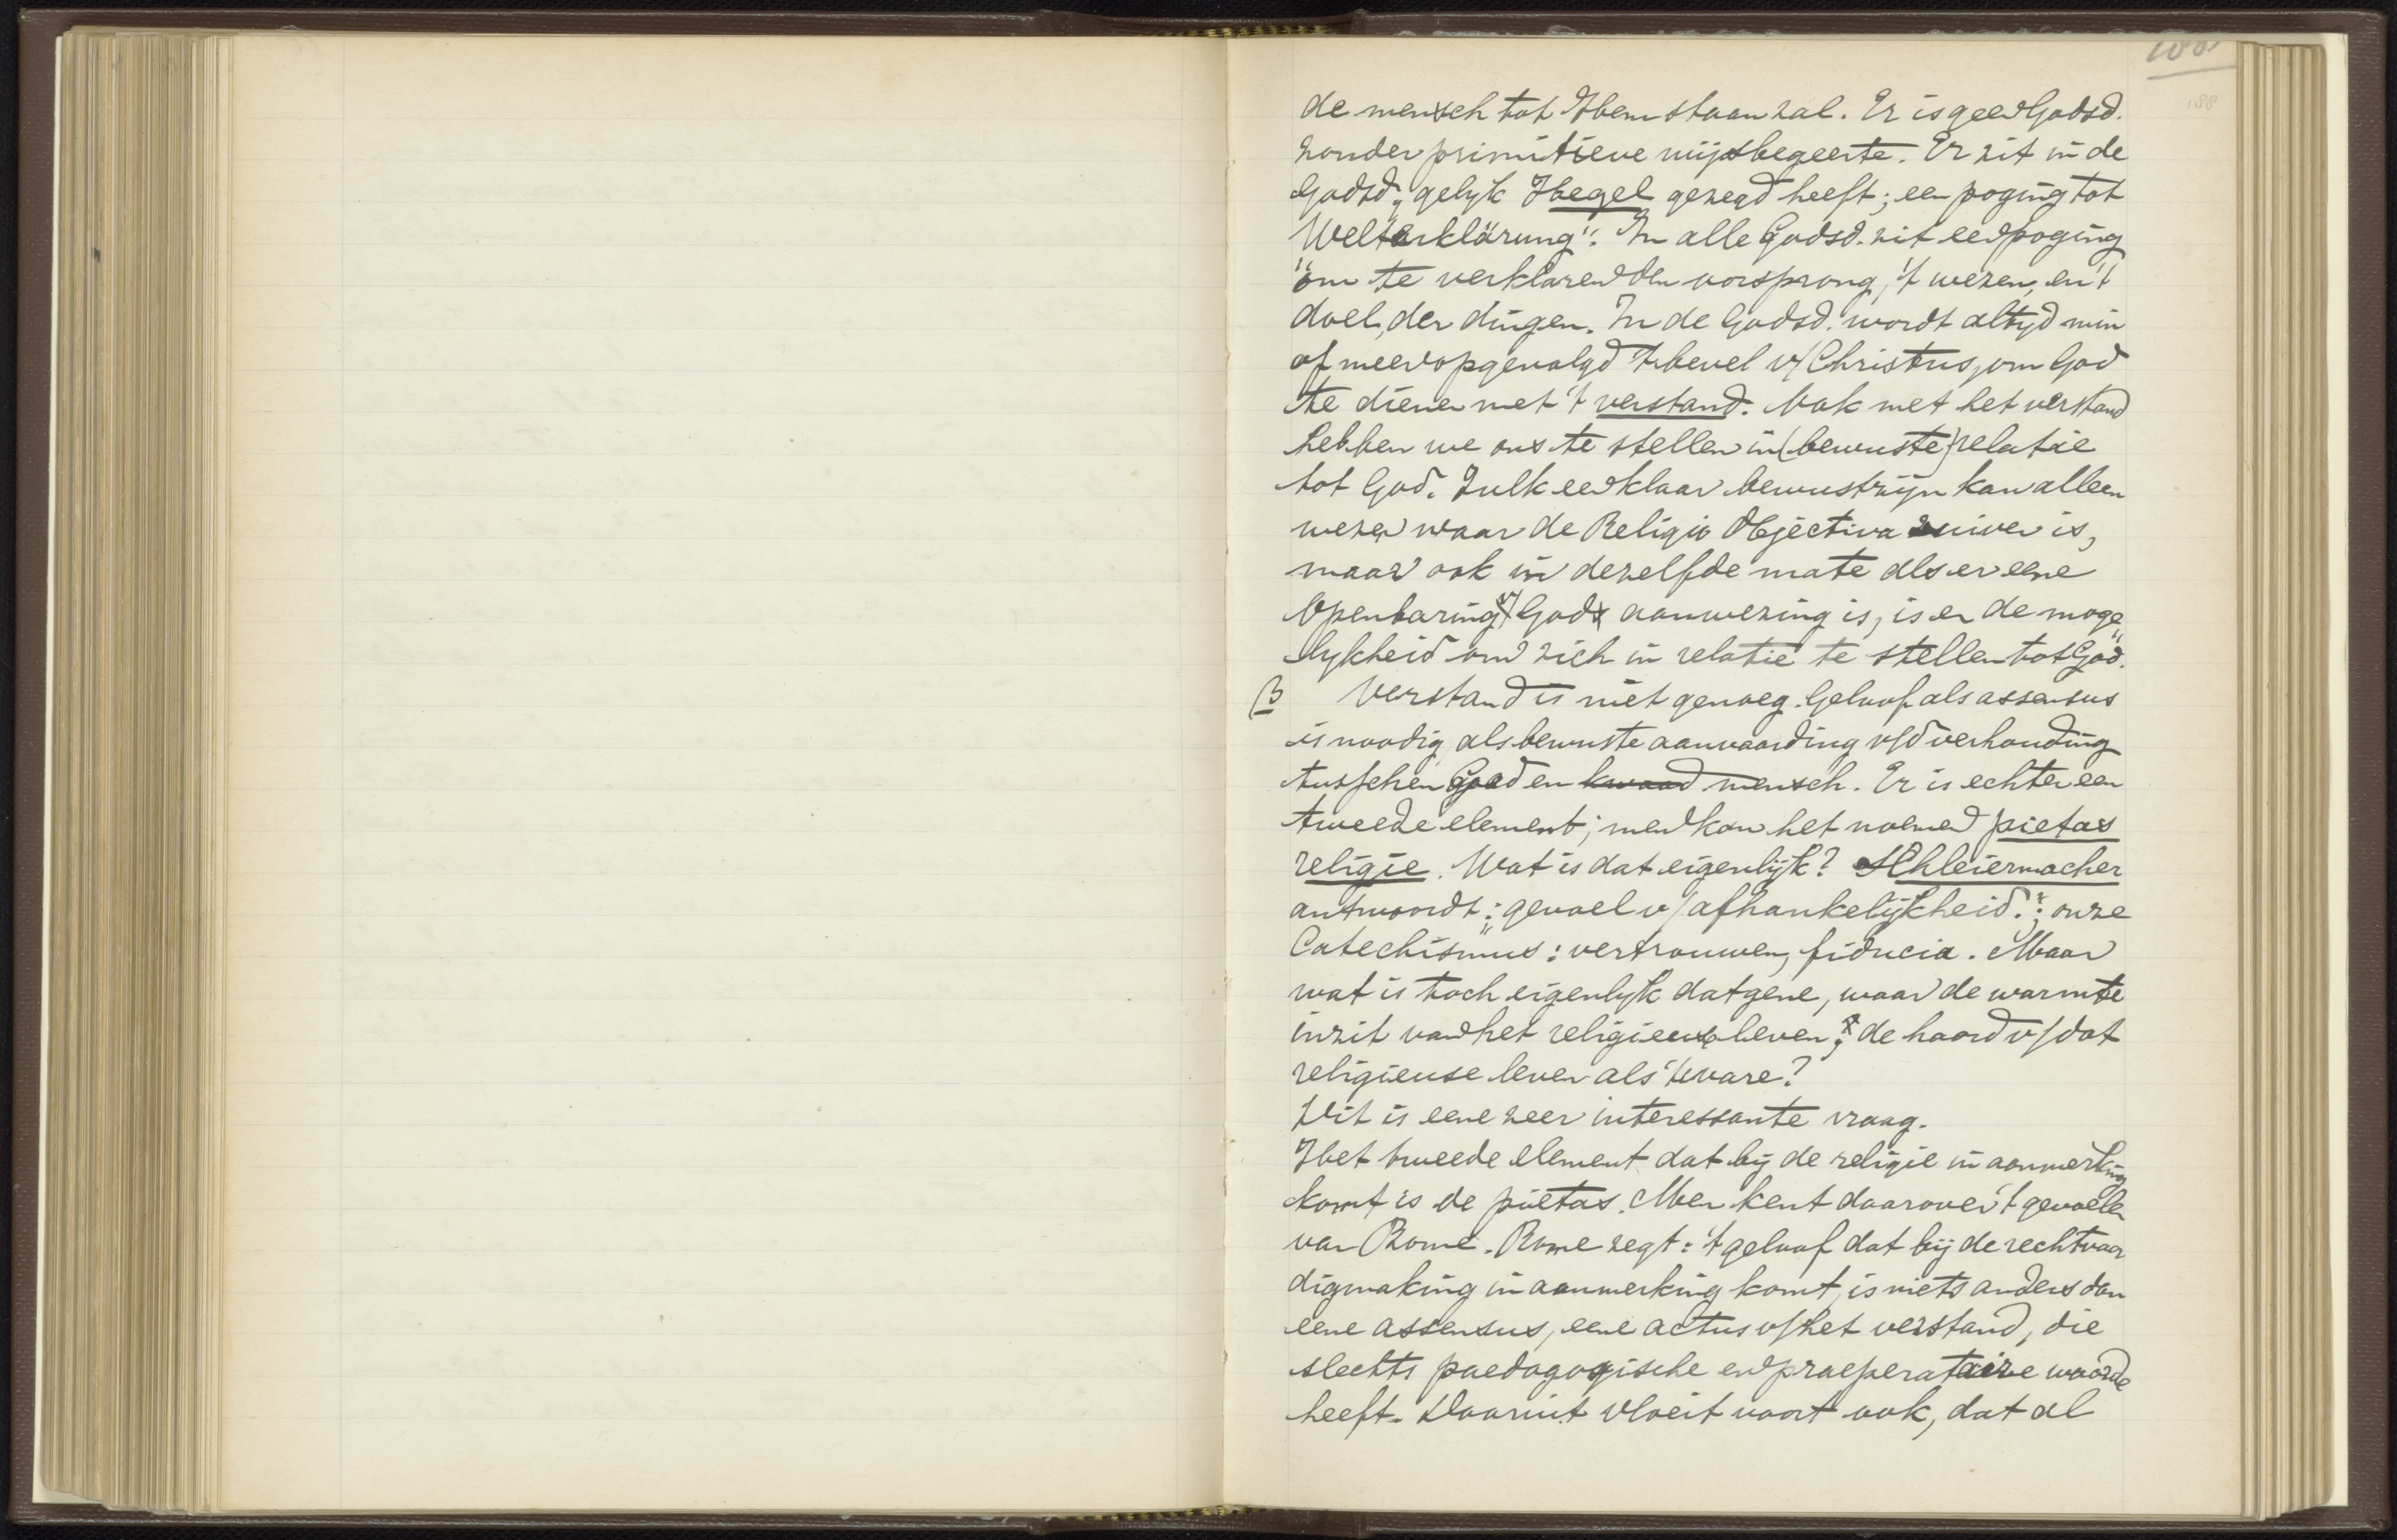 188
de mensch tot Hem staan zal. Er is geen Godsd.
zonder primitieve wijsbegeerte. Er zit in de
Godsd., gelyk Hegel gezegd heeft; een poging tot
Welterklärung". In alle Godsd. zit een poging
"om te verklaren den oorsprong, 't wezen, en 't
doel, der dingen. In de Godsd. wordt altyd min
of meer opgevolgd 't bevel v/ Christus, om God
te dienen met 't verstand. Ook met het verstand
hebben we ons te stellen in (bewuste) relatie
tot God. Zulk een klaar bewustzijn kan alleen
wezen waar de Religio Objectiva zuiver is,
maar ook in dezelfde mate als er eene
Openbaring v/ Gods aanwezing is, is er de moge
lykheid om zich in relatie te stellen tot God.
B Verstand is niet genoeg. Geloof als assensus
is noodig als bewuste aanvaarding v/d verhouding
tusschen God en kwaad mensch. Er is echter een
tweede element; men kan het noemen pietas
religie. Wat is dat eigenlijk? Schleiermacher
antwoordt: "gevoel v/ afhankelijkheid."; onze
Catechismus: vertrouwen, fiducia. Maar
wat is toch eigenlyk datgene, waar de warmte
inzit van het religieuse leven; de haard v/ dat
religieuse leven als 't ware?
Dit is eene zeer interessante vraag.
Het tweede element dat bij de religie in aanmerking
komt is de pietas. Men kent daarover 't gevoelen
van Rome. Rome zegt: 't geloof dat bij de rechtvaar
digmaking in aanmerking komt, is niets anders dan
eene assensus, eene actus v/ het verstand, die
slechts paedagogische en praeperataire waarde
heeft. Daaruit vloeit voort ook, dat al